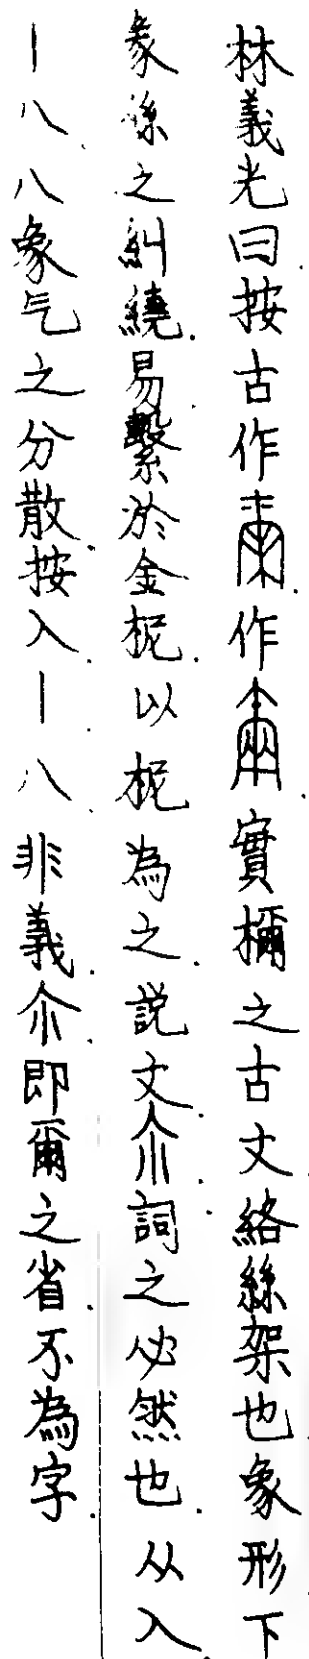 林義光曰按古作作實檷之古文絡絲架也象形下
象絲之糾繞易繫於金柅以柅為之說文尒詞之必然也从入
丨八八象气之分散按入丨八非義尒即爾之省不為字